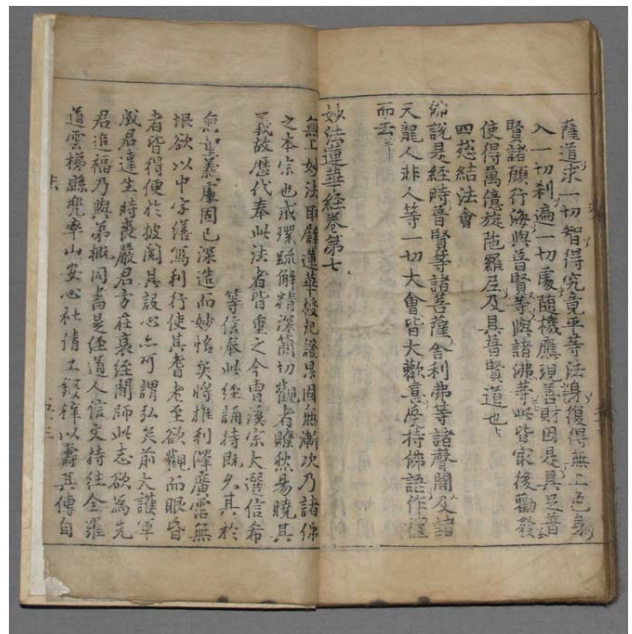 薩道求一切智得究竟平等法身復得無上色身
入一切刹遍一切處隨機應現善財因是具足普
賢諸願行海與普賢等與諸佛等此皆最後勸發
使得萬億旋陁羅尼及具普賢道也
四揔結法會
佛說是經時普賢等諸菩薩舍利弗等諸聲聞及諸
天龍人非人等一切大會皆大歡喜受持佛語作禮
而去
妙法蓮華經卷第七
無上妙法即譬蓮華授記證果固無漸次乃諸佛
之本宗也戒環疏解精深簡切觀者瞭然易曉其
義故歷代奉此法者皆重之今曹溪宗大選信希
等信奉此經誦持旣久其於
無量義處固已深造而妙悟矣將推利澤廣雲無
垠欲以中字繕寫刋行使其耆老至欲觀而眼昏
者皆得便於披閱其設心亦可謂弘矣前大護軍
成君達生時喪嚴君方在衰絰聞師此志欲爲先
君追福乃與弟槪同書是經道人信文持往全羅
道雲梯縣兜率山安心社倩工鋟梓以壽其傳自